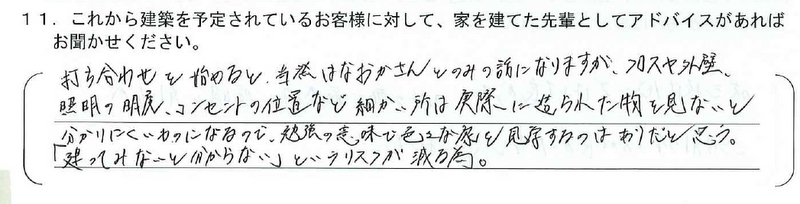 11．これから建築を予定されているお客様に対して、家を建てた先輩としてアドバイスがあれば
お聞かせください。
打ち合わせを始めると、当然はなおかさんとのみの話になりますが、クロスや外壁、
照明の明度、コンセントの位置など細かい所は実際に造られた物を見ないと
分かりにくいものになるので、勉強の意味で色々な家を見学するのはありだと思う。
「建ってみないと分からない」というリスクが減る為。